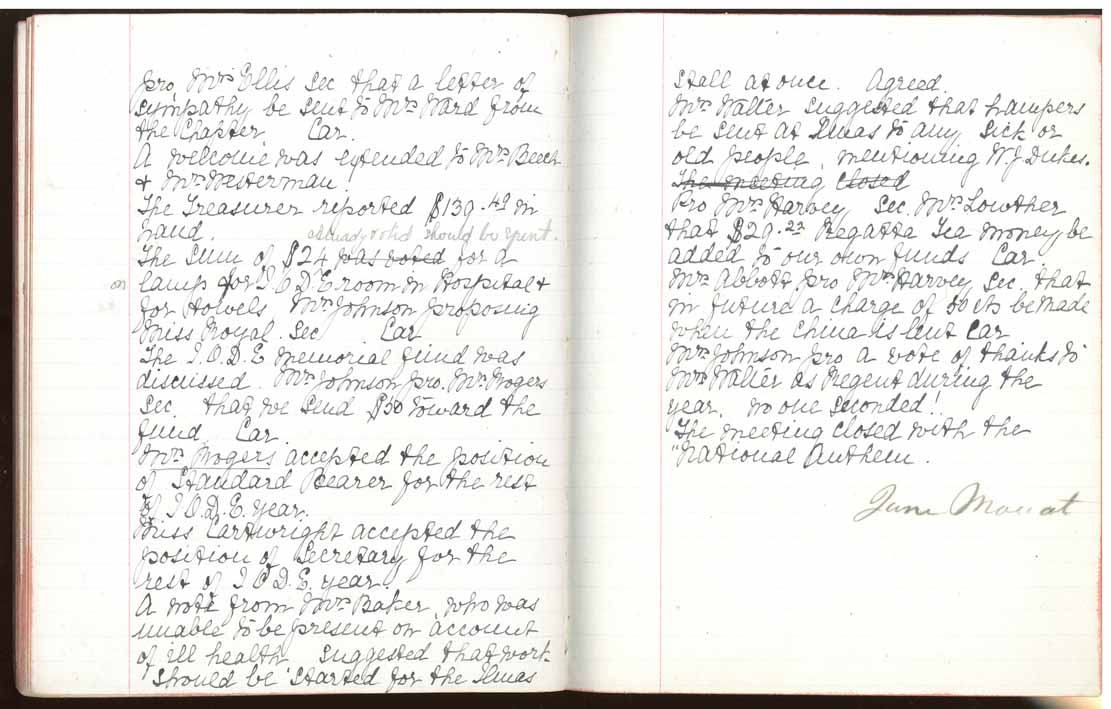 pro, Mrs Ellis Sec that a letter of
sympathy be sent to Mrs Ward from
the Chapter Car.
A welcome was extended to Mrs Beech
& Mrs Westerman.
The Treasurer reported $139.49 in
hand. already voted should be spent.
The sum of $24 was voted for a
on lamp for I.O.D.E room in Hospital &
for towels, Mrs Johnson proposing
Miss Royal Sec Car
The I.O.D.E memorial fund was
discussed. Mrs Johnson pro. Mrs Rogers
Sec. that we send $50 toward the
fund. Car.
Mrs Rogers accepted the position
of Standard Bearer for the rest
of I.O.D.E. year.
Miss Cartwright accepted the
position of Secretary for the
rest of I O D.E. year.
A note from Mrs Baker, who was
unable to be present on account
of ill health suggested that work
should be started for the Xmas
stall at once. Agreed.
Mrs Walter suggested that hampers
be sent at Xmas to any sick or
old people, mentioning W J Dukes.
The meeting closed
Pro Mrs Harvey, Sec. Mrs Lowther
that $29.23 Regatta Tea money be
added to our own funds Car.
Mrs Abbott, pro Mrs Harvey Sec. that
in future a charge of 50 cts be made
when the China is lent Car
Mrs Johnson pro a vote of thanks to
Mrs Walter as Regent during the
year. no one seconded!!
The meeting closed with the
"National Anthem.
Jane Mouat